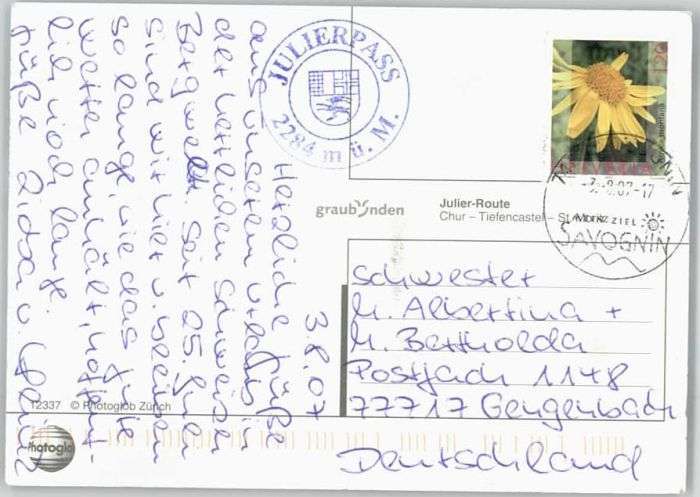 JULIERPASS
2284 m ü. M.
HELVETIA
7.8.07-17
MEIN ZIEL
SAVOGNIN
graubünden
Julier-Route
Chur – Tiefencastel – St. Moritz
3.8.07
Herzliche Grüße
aus unserem Urlaub in
der herrlichen Schweizer
Bergwelt. Seit 25. Juli
sind wir hier u. bleiben
so lange, wie das gute
Wetter anhält, hoffent-
lich noch lange.
Grüße
Schwester
M. Albertina +
M. Bertholda
Postfach 1148
77717 Gengenbach
Deutschland
12337 © Photoglob Zürich
Photoglob